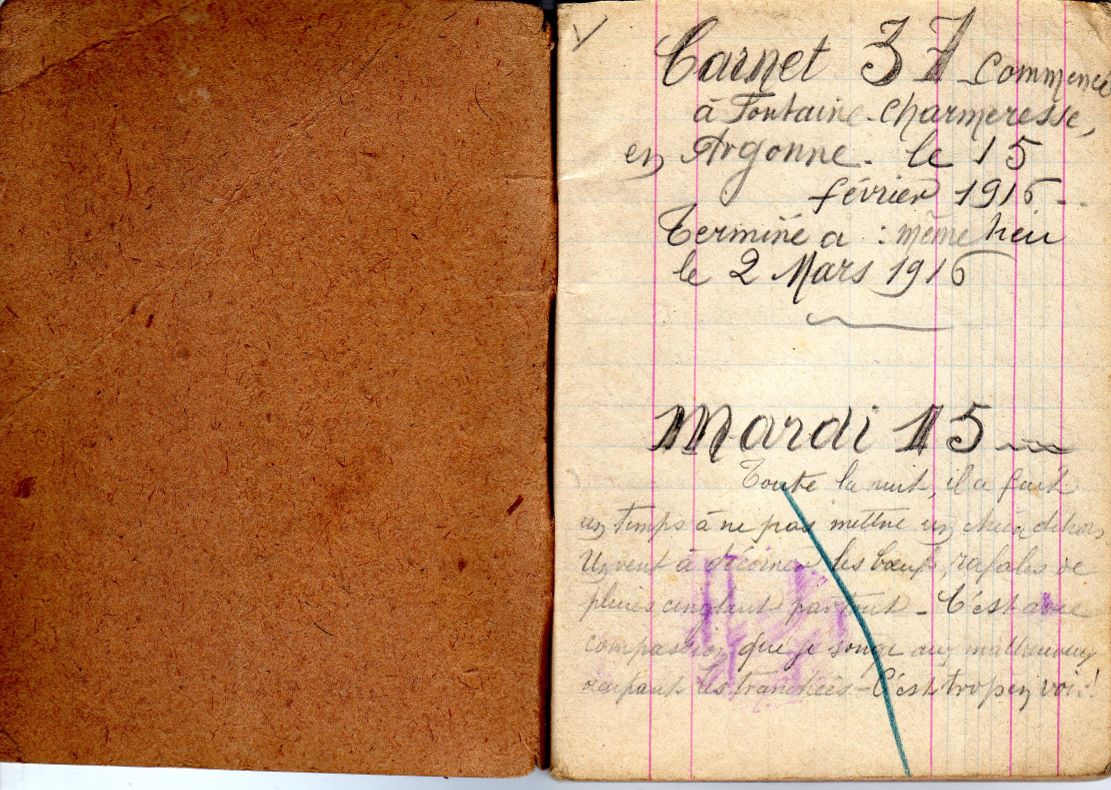 Carnet 37 commencé
à Fontaine-Charmeresse,
en Argonne - le 15
février 1916 -
Terminé a : même lieu
le 2 Mars 1916
Mardi 15
Toute la nuit, il a fait
un temps à ne pas mettre un chien dehors,
Un vent à décorner les bœufs, rafales de
pluies cinglant partout - C'est avec
compassion que je songe aux malheureux
occupant les tranchées - C'est trop en voir!